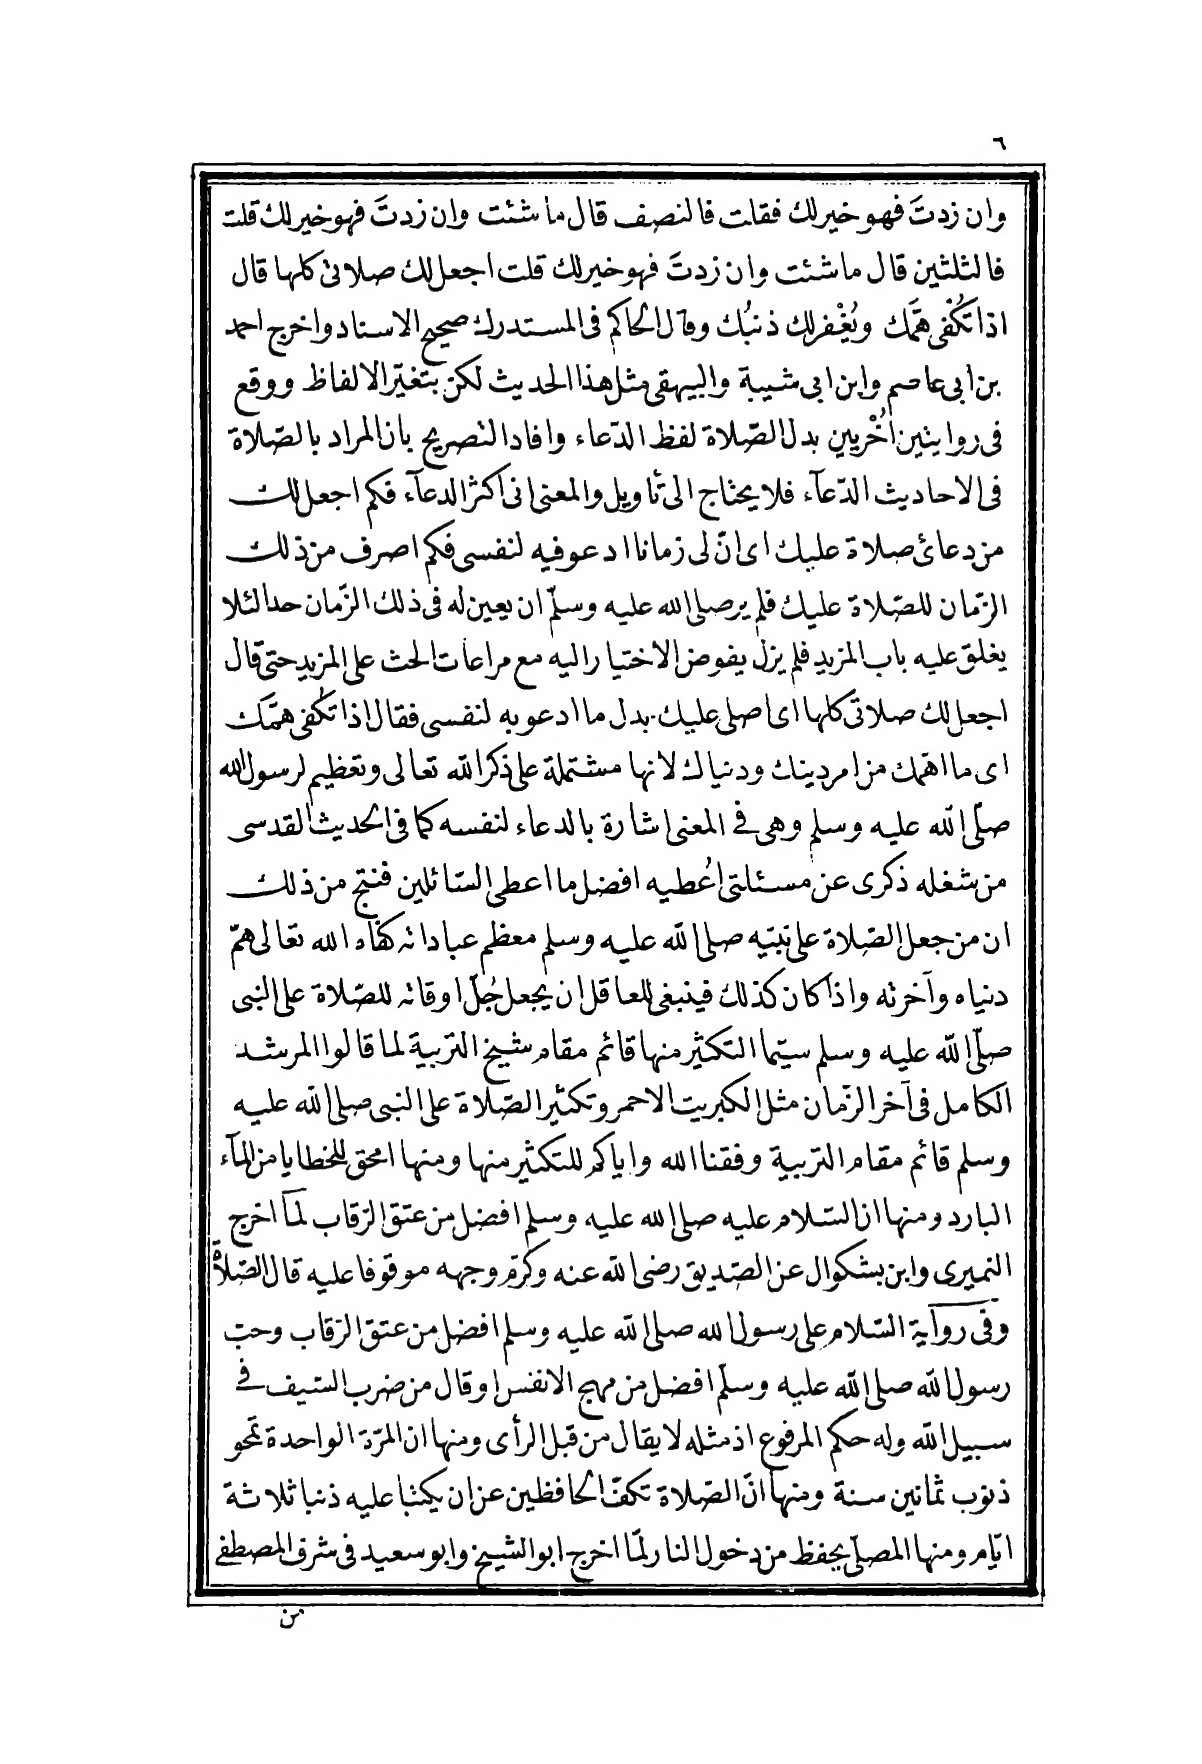 ٦
وان زدتَ فهو خير لك فقلت فالنصف قال ما شئت وان زدتَ فهو خير لك قلت
فالثلثين قال ما شئت وان زدتَ فهو خير لك قلت اجعل لك صلاتى كلها قال
اذا تُكفى همَّك ويُغْفر لك ذنبُك وقال الحاكم فى المستدرك صحيح الاسناد واخرج احمد
بن ابى عاصم وابن ابى شيبة والبيهقى مثل هذا الحديث لكن بتغيّر الالفاظ ووقع
فى روايتين اُخْريين بدل الصّلاة لفظ الدّعاء وافاد التصريح بان المراد بالصّلاة
فى الاحاديث الدّعآء فلا يحتاج الى تأويل والمعنى انى اكثر الدعآء فكم اجعل لك
من دعائى صلاة عليك اى انّ لى زمانا ادعو فيه لنفسى فكم اصرف من ذلك
الزّمان للصّلاة عليك فلم ير صلى الله عليه وسلّم ان يعين له فى ذلك الزّمان حدا لئلا
يغلق عليه باب المزيد فلم يزل يفوض الاختيار اليه مع مراعات الحث على المزيد حتى قال
اجعل لك صلاتى كلها اى اصلى عليك بدل ما ادعو به لنفسى فقال اذا تُكفى همَّك
اى ما اهمّك من امر دينك ودنياك لانها مشتملة على ذكر الله تعالى وتعظيم لرسول الله
صلّى الله عليه وسلم وهى فى المعنى اشارة بالدعاء لنفسه كما فى الحديث القدسى
من شغله ذكرى عن مسئلتى اُعطيه افضل ما اعطى السّائلين فنتج من ذلك
ان من جعل الصّلاة على نبيّه صلى الله عليه وسلم معظم عباداته كفاه الله تعالى همّ
دنياه وآخرته واذا كان كذلك فينبغى للعاقل ان يجعل جُلّ اوقاته للصّلاة على النبى
صلّى الله عليه وسلم سيّما التكثير منها قائم مقام شيخ التربية لما قالوا المرشد
الكامل فى آخر الزّمان مثل الكبريت الاحمر وتكثير الصّلاة على النبى صلى الله عليه
وسلم قائم مقام التربية وفقنا الله واياكم للتكثير منها ومنها امحق للخطايا من المآء
البارد ومنها ان السّلام عليه صلى الله عليه وسلم افضل من عتق الرّقاب لمآ اخرج
النميرى وابن بشكوال عن الصّديق رضى الله عنه وكرّم وجهه موقوفا عليه قال الصّلاةُ
وفى رواية السّلام على رسول الله صلى الله عليه وسلم افضل من عتق الرّقاب وحبّ
رسول الله صلى الله عليه وسلّم افضل من مهج الانفس او قال من ضرب السّيف فى
سبيل الله وله حكم المرفوع اذ مثله لا يقال من قبل الرأى ومنها ان المرّة الواحدة تمحو
ذنوب ثمانين سنة ومنها انّ الصّلاة تكفّ الحافظين عن ان يكتبا عليه ذنبا ثلاثة
ايّام ومنها المصلّى يحفظ من دخول النار لمّا اخرج ابو الشيخ وابو سعيد فى شرف المصطفى
من